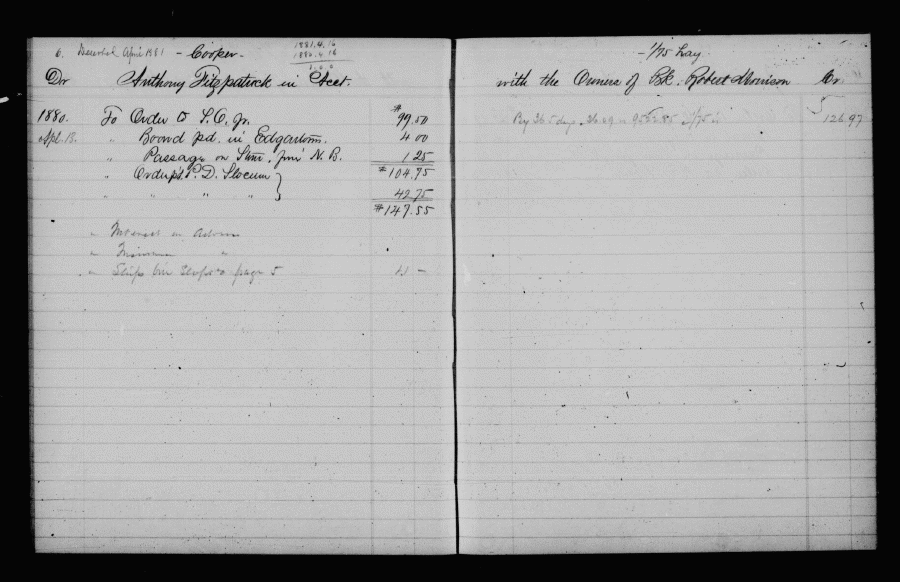 6. Deserted April 1881 - Cooper -
1881.4.16
1880.4.16
1.0.0
Dr Anthony Fitzpatrick in Acct.
1880. To Order O S.O. Jr. $99.50
Apl. 13. " Board pd. in Edgartown. 4 00
" Passage on Stmr. fm N. B. 1 25
$104.75
" Order pd. P. D. Slocum }
" " " " 42.75
$147.55
" Interest on Advance
" Insurance "
" Ships bill Slops page 5 4 -
- 1/75 Lay.
with the Owners of Bk. Robert Morrison Cr.
By 365 days 126.97